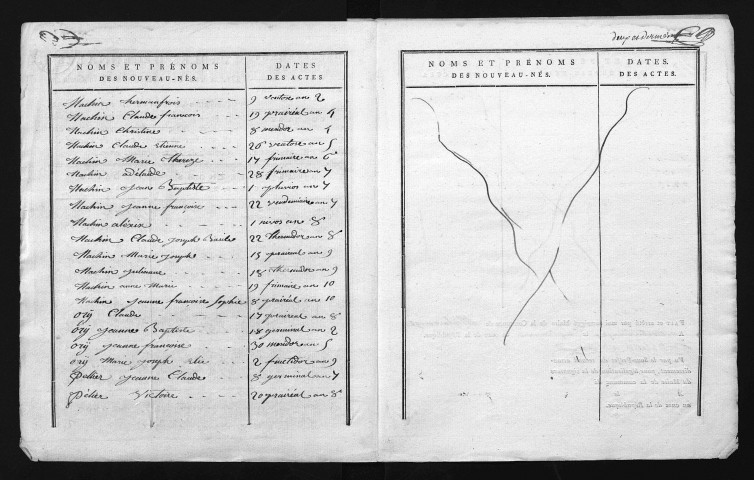 NOMS ET PRÉNOMS
DES NOUVEAU-NÉS.
DATES
DES ACTES
Machin hermanfrois 9 ventose an 2
Machin Claude francois 19 prairéal an 4
Machin Christine 8 messidor an
Machin Claude etienne 26 ventose an 5
Machin Marie thereze 17 frimaire an 6
Machin adélaide 28 frimaire an 7
Machin Jean Baptiste 1 pluvios an 7
Machin Jeanne françoise 22 vendemiaire an 7
Machin alexis 1 nivos an 8
Machin Claude Joseph Basile 22 thermidor an 8
Machin Marie Joseph 15 prairéal an 9
Machin julienne 18 thermidor an 9
Machin anne Marie 19 frimaire an 10
Machin Jeanne francoise Sophie 8 prairéal an 10
ory Claude 17 prairéal an 8
ory Jeanne Baptiste 18 germinal an 2
ory Jeanne francoise 30 messidor an 5
ory Marie joseph 2 fructidor an 9
Pellier Jeanne Claude 8 germinal an 7
pélier Victoire 20 prairéal an 8
deux et dernier
NOMS ET PRÉNOMS
DES NOUVEAU-NÉS.
DATES.
DES ACTES.